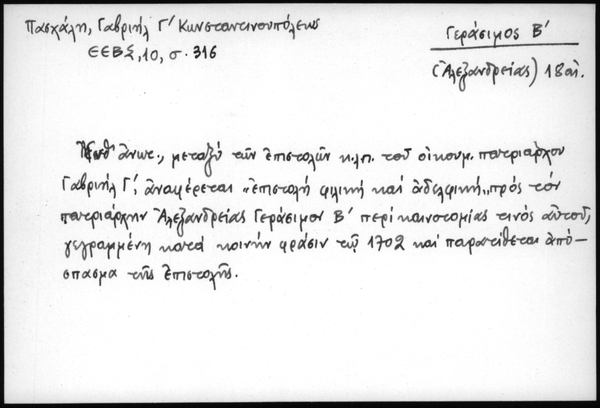 Πασχάλη, Γαβριήλ Γ' Κωνσταντινουπόλεως
ΕΕΒΣ, 10, σ. 316
Γεράσιμος Β'
(Ἀλεξανδρείας) 18 αἰ.
Ἔνθ' ἄνωτ., μεταξύ τῶν ἐπιστολῶν κ.λ.π. τοῦ οἰκουμ. πατριάρχου
Γαβριήλ Γ', ἀναφέρεται «ἐπιστολή φιλική καί ἀδελφική» πρός τόν
πατριάρχην Ἀλεξανδρείας Γεράσιμον Β' περί καινοτομίας τινός αὐτοῦ,
γεγραμμένη κατά κοινήν φράσιν τῷ 1702 καί παρατίθεται ἀπό-
σπασμα τῆς ἐπιστολῆς.